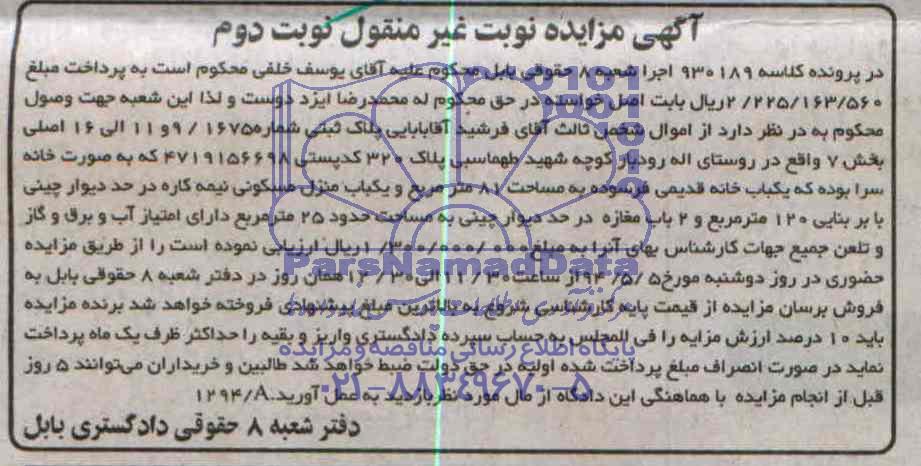 آگهی مزایده نوبت غیر منقول نوبت دوم
در پرونده کلاسه ۹۳۰۱۸۹ اجرا شعبه ۸ حقوقی بابل محکوم علیه آقای یوسف خلفی محکوم است به پرداخت مبلغ
۲/۲۲۵/۱۶۳/۵۶۰ ریال بابت اصل خواسته در حق محکوم له محمدرضا ایزد دوست و لذا این شعبه جهت وصول
محکوم به در نظر دارد از اموال شخص ثالث آقای فرشید آقابابایی پلاک ثبتی شماره ۱۶۷۵۰ / ۹ و ۱۱ الی ۱۶ اصلی
بخش ۷ واقع در روستای اله رودبار کوچه شهید طهماسبی پلاک ۳۲۰ کدپستی ۴۷۱۹۱۵۶۶۹۸ که به صورت خانه
سرا بوده که یکباب خانه قدیمی فرسوده به مساحت ۸۱ متر مربع و یکباب منزل مسکونی نیمه کاره در حد دیوار چینی
با بر بنایی ۱۲۰ مترمربع و ۲ باب مغازه در حد دیوار چینی به مساحت حدود ۲۵ مترمربع دارای امتیاز آب و برق و گاز
و تلعن جمیع جهات کارشناس بهای آنرا به مبلغ ۱/۳۰۰/۰۰۰/۰۰۰ ریال ارزیابی نموده است را از طریق مزایده
حضوری در روز دوشنبه مورخ ۹۴/۵/۵ از ساعت ۱۱/۳۰ الی ۱۲/۳۰ همان روز در دفتر شعبه ۸ حقوقی بابل به
فروش برسان مزایده از قیمت پایه کارشناسی شروع به بالاترین مبلغ پیشنهادی فروخته خواهد شد برنده مزایده
باید ۱۰ درصد ارزش مزایه را فی المجلس به حساب سپرده دادگستری واریز و بقیه را حداکثر ظرف یک ماه پرداخت
نماید در صورت انصراف مبلغ پرداخت شده اولیه در حق دولت ضبط خواهد شد طالبین و خریداران می‌توانند ۵ روز
قبل از انجام مزایده با هماهنگی این دادگاه از مال مورد نظر بازدید به عمل آورید.۱۲۹۴/A
دفتر شعبه ۸ حقوقی دادگستری بابل
ParsNamadData
پایگاه اطلاع رسانی مناقصه و مزایده
۰۲۱-۸۸۳۴۹۶۷۰-۵